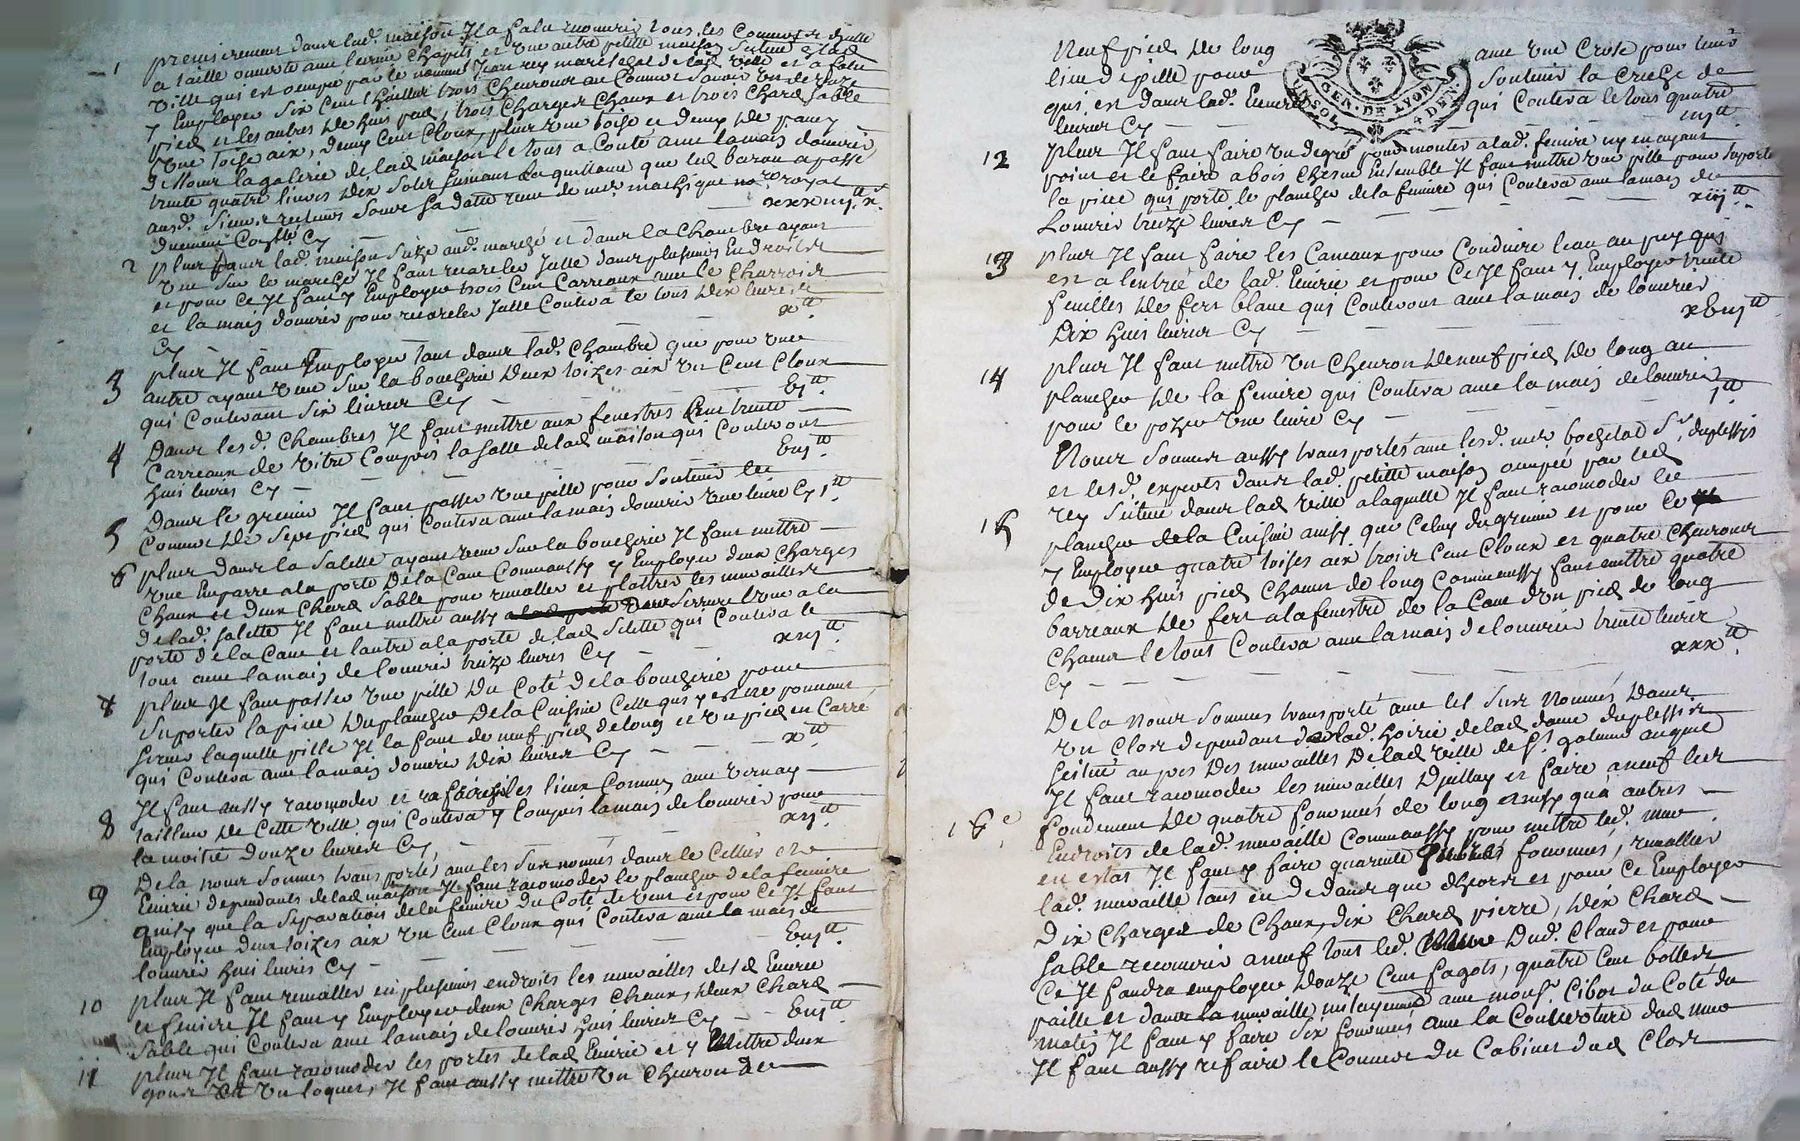 1 premierement dans lad. maison Il a falu recouvrir tous les Couverts de lad.
a taille ouverte avec l'ecurie et une autre petitte maison scitue a lad.
ville qui est ocupée par le nommé Jean rey marechal de lad. ville et a falu
y Employer six Cent thuilles trois Chevrons au Couvert savoir un de douze
pied et les autres de huis pied, trois Charges Chaux et trois Chard sable
une toise aix, demy Cent Cloux, plus une toise et demy de pavey
dessous la galerie de lad maison le tous a Conté avec la main d'ouvrier
trente quatre livres dix sols suivant la quittance que led baron a passé
aud. Sieur
xxxiiij tt x s.
2 plus dans lad. maison scize aud. marché et dans la Chambre ayant
vue sur le marché Il faut recareler Jcelle dans plusieurs Endroites
et pour Ce Il faut y Employer trois Cent Carreaux avec le Charroir
et la main d'ouvrier pour recareler Jcelle Coutera le tous dix livres
Cy x tt
3 plus Il faut Employer tant dans lad. Chambre que pour une
autre ayant vue sur la boucherie deux toizes aix un Cent Cloux
qui Couteront six livres Cy vj tt
4 Dans lesd. Chambres Il faut mettre aux fenestres Cent trente
Carreaux de vitre Compris la salle de lad maison qui Couteront
huis livres Cy viij tt
5 Dans le grenier Il faut passer une pille pour soutenir le
Couvert de sept pied qui Coutera avec la main d'ouvrier une livre Cy 1 tt
6 plus dans la salette ayant vue sur la boucherie Il faut mettre
une Emparre a la porte de la Cave Comm'aussy y Employer deux Charges
Chaux et deux Chard sable pour remaller et plattrer les murailles
de lad. salette Il faut mettre aussy deux serrures l'une a la
porte de la Cave et l'autre a la porte de lad salette qui Coutera le
tout avec la main de l'ouvrier treize livres Cy xiij tt
7 plus Il faut passer une pille du Coté de la boucherie pour
suporter la piece du plancher de la Cuisine Celle qui y est ne pouvant
servir laquelle pille Il la faut de neuf pied de long et un pied en Carré
qui Coutera avec la main d'ouvrier dix livres Cy x tt
8 Il faut aussy racomoder et refaire les lieux Commun avec vernay
tailleur de Cette ville qui Coutera y Compris la main de l'ouvrier pour
la moitié douze livres Cy xij tt
De la nous sommes transportés avec les sus nommés dans le Cellier et
9 Ecurie dependants de lad maison Il faut racomoder le plancher de la feniere
ainsy que la separation de la feniere du Coté de vent et pour Ce Il faut
Employer deux toizes aix un Cent Cloux qui Coutera avec la main de
l'ouvrier huis livres Cy viij tt
10 plus Il faut remaller en plusieurs endroits les murailles desd Ecurie
et feniere Il faut y Employer deux Charges Chaux, deux Chard
sable qui Coutera avec la main de l'ouvrier huis livres Cy viij tt
11 plus Il faut racomoder les portes de lad Ecurie et y Mettre deux
gons et un loquet, Il faut aussy mettre un Chevron de
Neuf pied de long avec une Crose pour tenir
lieu de pille pour soutenir la Creche de
qui est dans lad. Ecurie qui Coutera le tous quatre
livres Cy iiij tt
GEN. DE LYON
4 DEN
12 plus Il faut faire un degré pour monter a lad. feniere ny en ayant
point et le faire a bois Chesne ensemble Il faut mettre une pille pour suporter
la piece qui porte le plancher de la feniere qui Coutera avec la main de
l'ouvrier treize livres Cy xiij tt
13 plus Il faut faire les Caneaux pour Conduire l'eau au puy qui
est a l'entrée de lad. Ecurie et pour Ce Il faut y Employer trente
feuilles de fert blanc qui Couteront avec la main de l'ouvrier
Dix huis livres Cy xviij tt
14 plus Il faut mettre un Chevron de neuf pied de long au
plancher de la feniere qui Coutera avec la main de l'ouvrier
pour le pozer une livre Cy 1 tt
Nous sommes aussy transportés avec lesd. duplessis
et lesd. experts dans lad. petitte maison ocupée par led
rey scitue dans lad ville a laquelle Il faut racomoder le
15 plancher de la Cuisine aussy que Celuy du grenier et pour Ce
y Employer quatre toises aix trois Cent Cloux et quatre Chevrons
de Dix huis pied Chacun de long Comm'aussy faut mettre quatre
barreaux de fert a la fenestre de la Cave d'un pied de long
Chacun le tout Coutera avec la main de l'ouvrier trente livres
Cy xxx tt
De la Nous sommes transporté avec les sus Nommés dans
un Clos dependant de lad. hoirie de lad dame duplessis
scitué au pres des murailles de lad ville de St. galmier auquel
Il faut racomoder les murailles d'Jcelluy et faire a neuf les
16e fondement de quatre fommés de long ainsy qu'a autres
Endroits de lad. muraille Comm'aussy pour mettre led. mur
en estat Il faut y faire quarente fommés, remaller
lad. muraille tant en dedans que dehors et pour Ce Employer
Dix Charges de Chaux, dix Chard pierre, dix Chard
sable recouvrir a neuf tout led. Dud. Claud et pour
Ce Il faudra employer douze Cent fagots, quatre Cent bottes
paille et dans la muraille mitoyenne avec mons. Cibot du Coté du
matin Il faut y faire six fommés avec la Couverture dud mur
Il faut aussy refaire le Couvert du Cabinet dud Clos